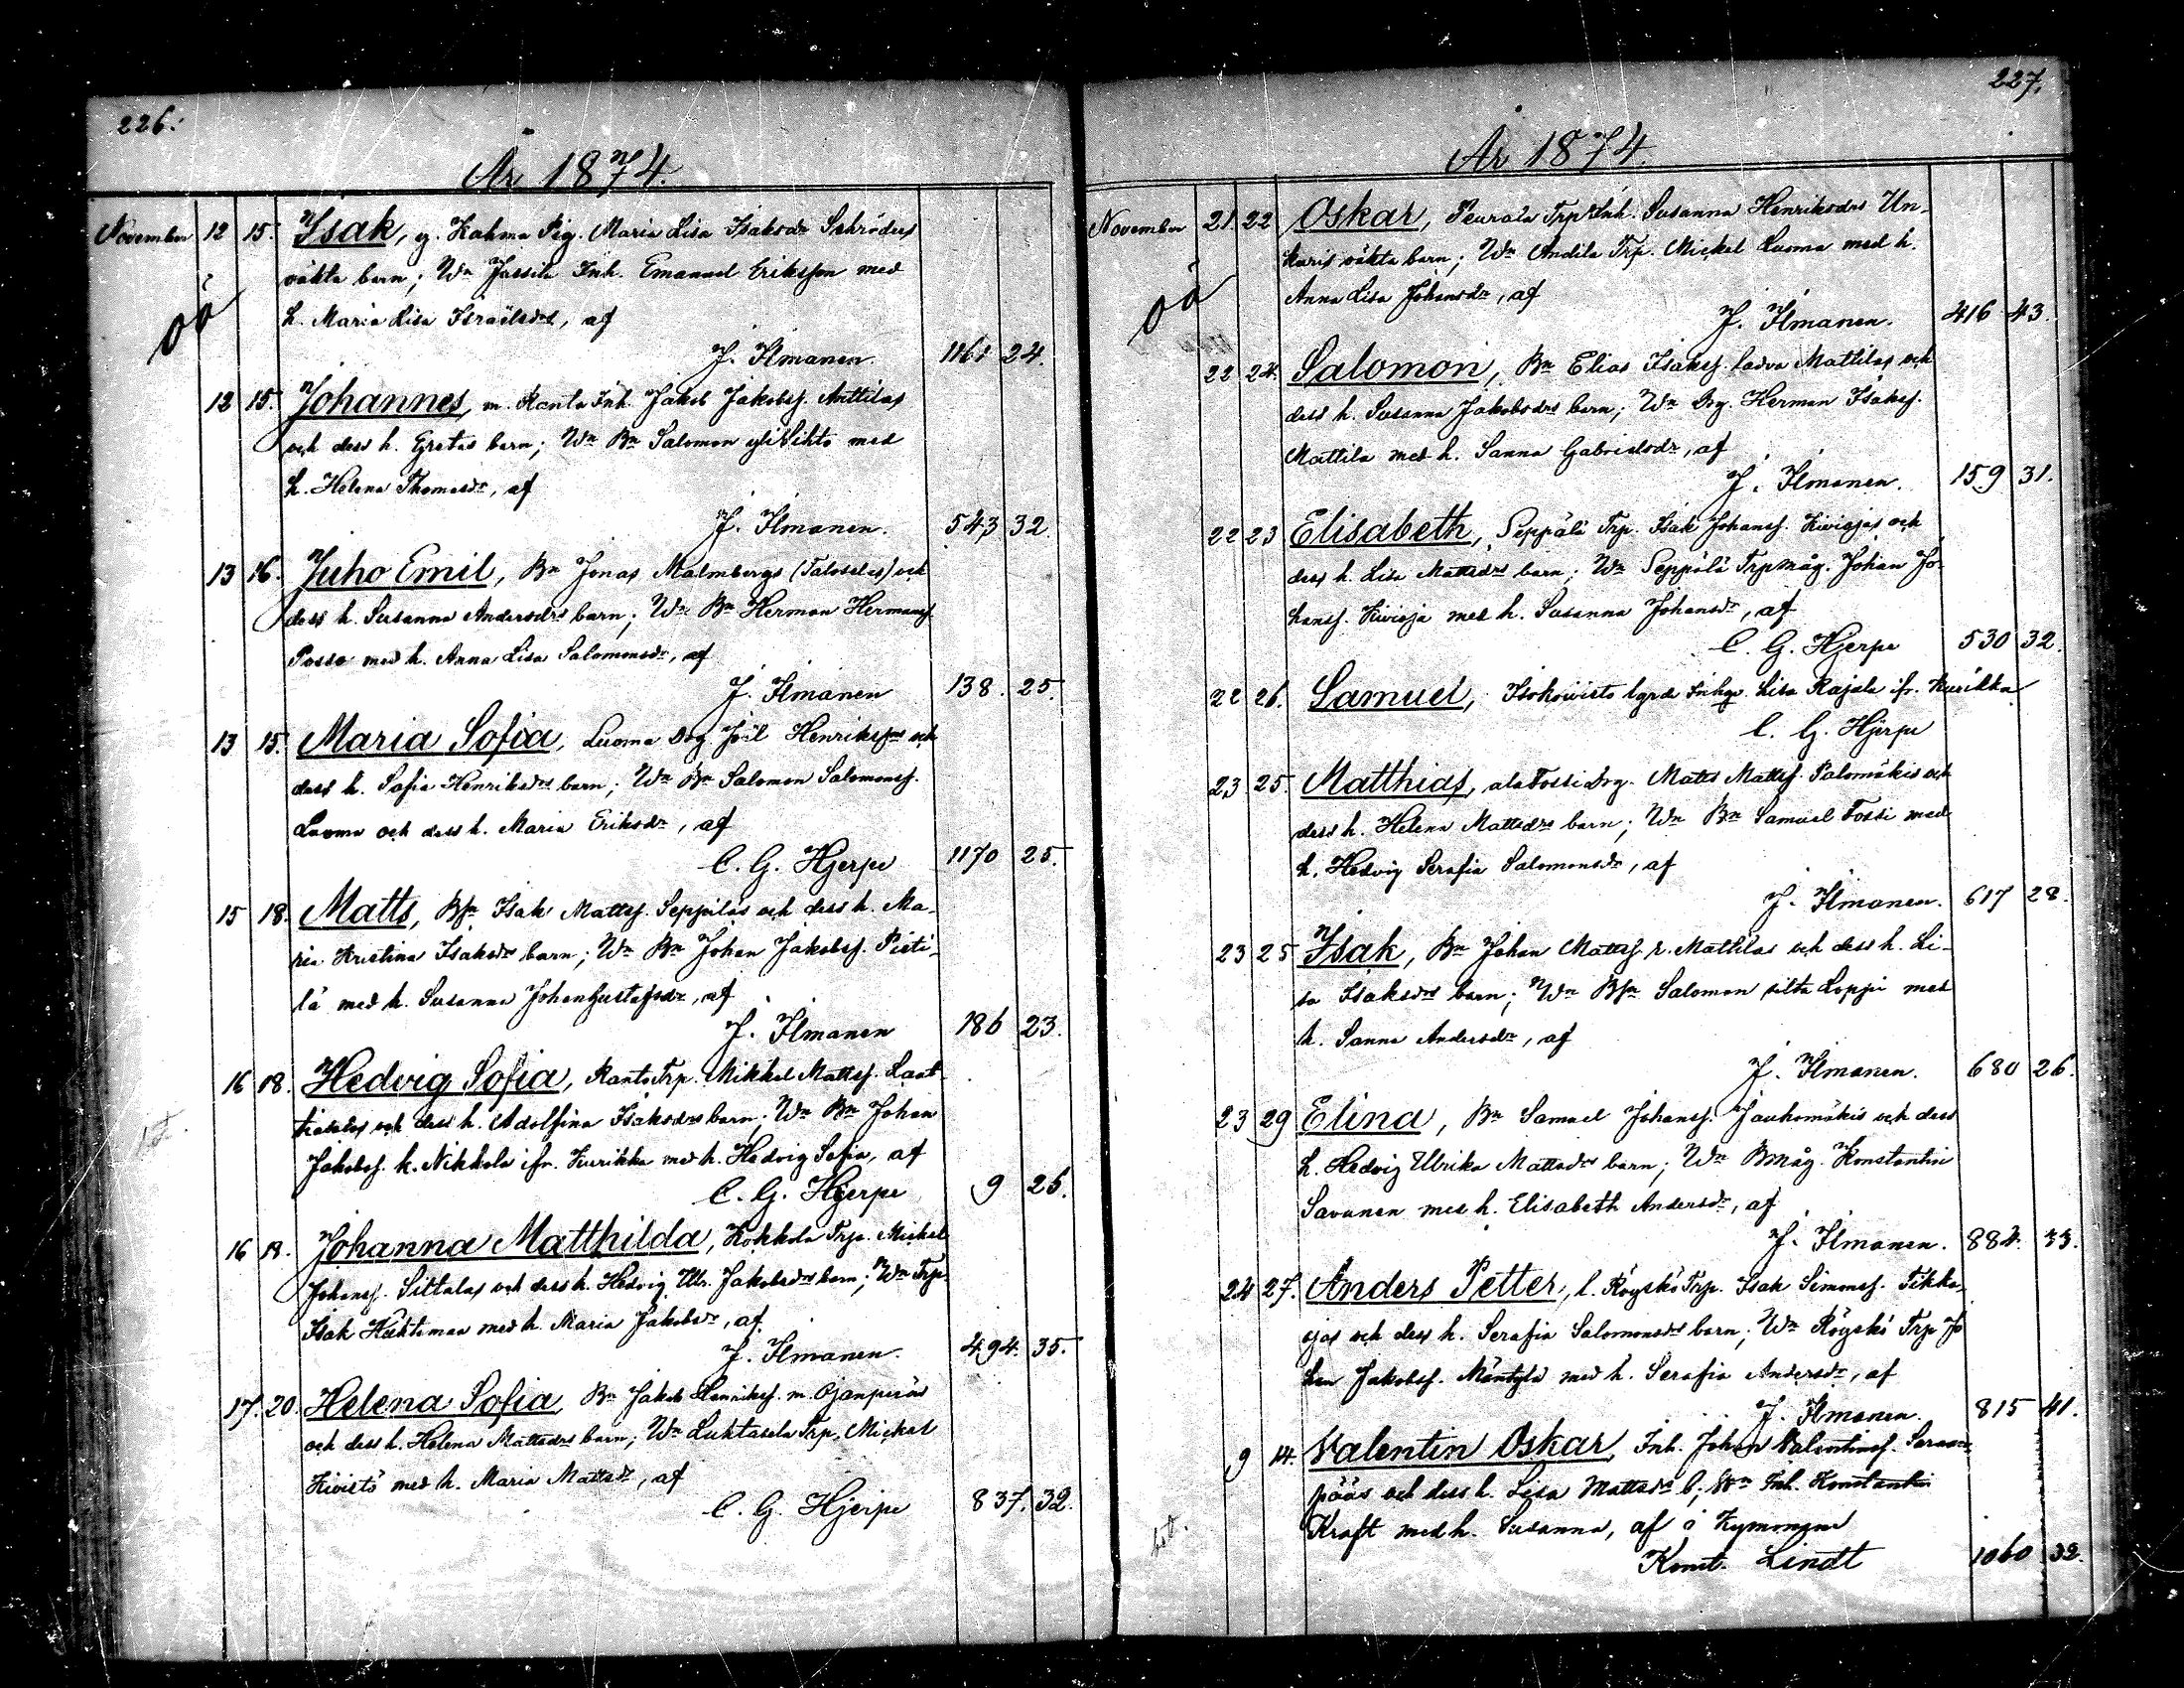 226.
År 1874.
November 12 15. Isak, y. Kahma Pig. Maria Lisa Isaksdr Schröders
oäkta barn; Wn Jassila Inh. Emanuel Eriksson med
h. Maria Lisa Israelsdr, af
oä
J. Ilmanen. 1161 24.
12 15. Johannes, m. Ranta Inh. Jakob Jakobss. Anttilas
och dess h. Gretas barn; Wn Bn Salomon yli Sihto med
h. Helena Thomasdr, af
J. Ilmanen. 543 32.
13 16. Juho Emil, Bn Jonas Malmbergs (Taloselas) och
dess h. Susanna Andersdrs barn; Wn Bn Herman Hermanss.
Posso med h. Anna Lisa Salomonsdr, af
J. Ilmanen 138. 25.
13 15. Maria Sofia, Luoma Drg. Joël Henrikssons och
dess h. Sofia Henriksdrs barn; Wn Bn Salomon Salomonss.
Luoma och dess h. Maria Eriksdr, af
C. G. Hjerpe 1170 25.
15 18. Matts, Bsn Isak Mattss. Seppiläs och dess h. Ma-
ria Kristina Isaksdrs barn; Wn Bn Johan Jakobss. Pieti-
lä med h. Susanna Johan Gustafsdr, af
J. Ilmanen 186 23.
16 18. Hedvig Sofia, Ranto Trp. Mikkel Mattss. Laut-
tialas och dess h. Adolfina Isaksdrs barn; Wn Bn Johan
Jakobss. k. Nikkola ifr. Kurikka med h. Hedvig Sofia, af
C. G. Hjerpe 9 26.
16 18. Johanna Matthilda, Kokkola Trp. Mickel
Johanss. Siltalas och dess h. Hedvig Ulr. Jakobsdrs barn; Wn Trp.
Isak Huhtamaa med h. Maria Jakobsdr, af
J. Ilmanen. 494. 35.
17. 20. Helena Sofia, Bn Jakob Henrikss. m. Ojanperäs
och dess h. Helena Mattsdrs barn; Wn Luhtasela Trp. Mickel
Kivistö med h. Maria Mattsdr, af
C. G. Hjerpe 837. 32.
227.
År 1874.
November 21. 22 Oskar, Peurala Trp Inh. Susanna Henriksdrs Un-
karis oäkta barn; Wn Andila Trp. Mickel Luoma med h.
Anna Lisa Johansdr, af
oä
J. Ilmanen. 416 43.
22 24. Salomon, Bn Elias Isakss. ladva Mattilas och
dess h. Susanna Jakobsdrs barn; Wn Drg. Herman Isakss.
Mattila med h. Sanna Gabrielsdr, af
J. Ilmanen. 159 31.
22 23 Elisabeth, Seppälä Trp. Isak Johanss. Kiviojas och
dess h. Lisa Mattsdrs barn; Wn Seppälä Trpmåg. Johan Jo-
hanss. Kivioja med h. Susanna Johansdr, af
C. G. Hjerpe 530 32.
22 26. Samuel, Isokoivisto Inhqv. Lisa Rajala ifr. Kurikka
C. G. Hjerpe
23 25. Matthias, ala Fossi Drg. Matts Mattss. Palomäkis och
dess h. Helena Mattsdrs barn; Wn Bn Samuel Fossi med
h. Hedvig Serafia Salomonsdr, af
J. Ilmanen. 617 28.
23 25 Isak, Bn Johan Mattss. r. Mattilas och dess h. Li-
sa Isaksdrs barn; Wn Bsn Salomon silta Loppi med
h. Sanna Andersdr, af
J. Ilmanen. 680 26.
23 29 Elina, Bn Samuel Johanss. Jauhomäkis och dess
h. Hedvig Ulrika Mattsdrs barn; Wn Bmåg. Konstantin
Savunen med h. Elisabeth Andersdr, af
J. Ilmanen. 884. 33.
24 27. Anders Petter, l. Röyskö Trp. Isak Simonss. Tikka-
ojas och dess h. Serafia Salomonsdrs barn; Wn Röyskö Trp Jo
han Jakobss. Mäntylä med h. Serafia Andersdr, af
J. Ilmanen. 815 41.
9 14. Valentin Oskar, Inh. Johan Valentinss. Saran-
pääs och dess h. Lisa Mattsdrs b; Wn Inh. Konstantin
Kraft med h. Susanna, af i Kymmene
Konst. Lindt 1060 32.